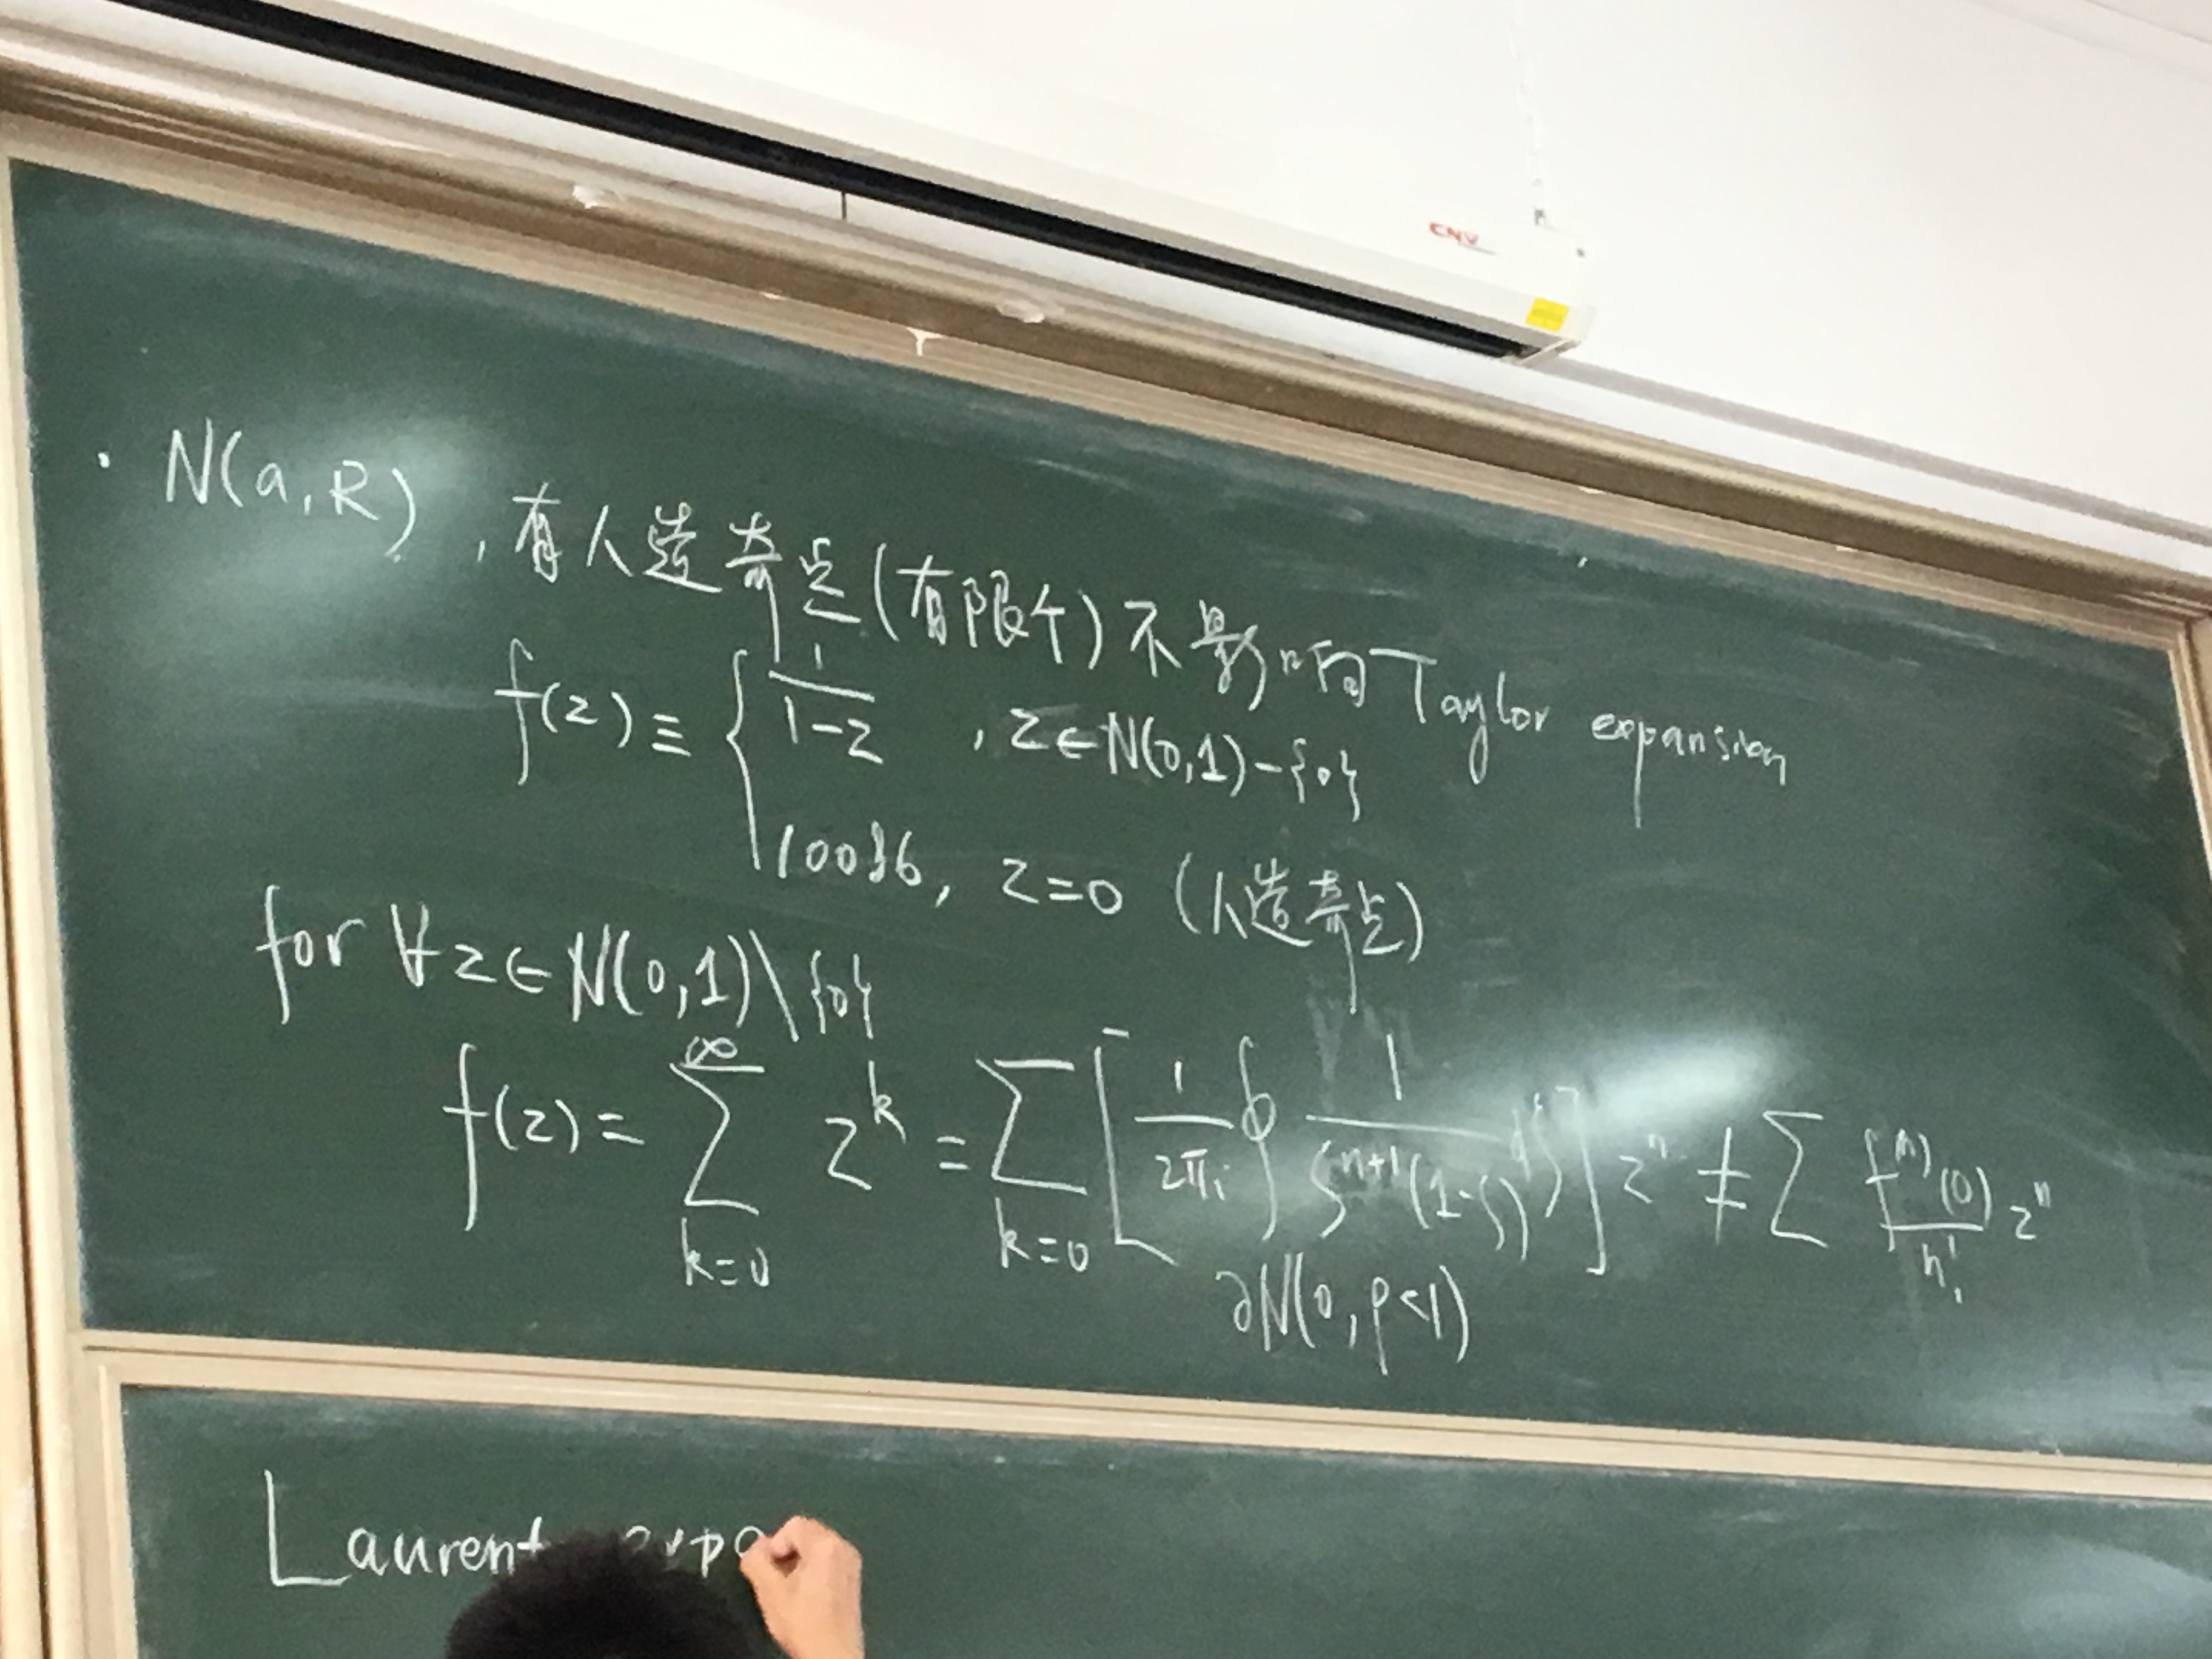 CNV
· N(a,R), 有人造奇点(有限个)不影响Taylor expansion
f(z) ≡ { 1/(1-z) , z∈N(0,1)-{0}
10086, z=0 (人造奇点)
for ∀z∈N(0,1)\{0}
f(z) = ∑_{k=0}^{∞} z^k = ∑_{k=0} [ 1/(2πi) ∮_{∂N(0,ρ<1)} 1/(ζ^{n+1}(1-ζ)) dζ ] z^n ≠ ∑ f^{(n)}(0)/n! z^n
Laurent expa